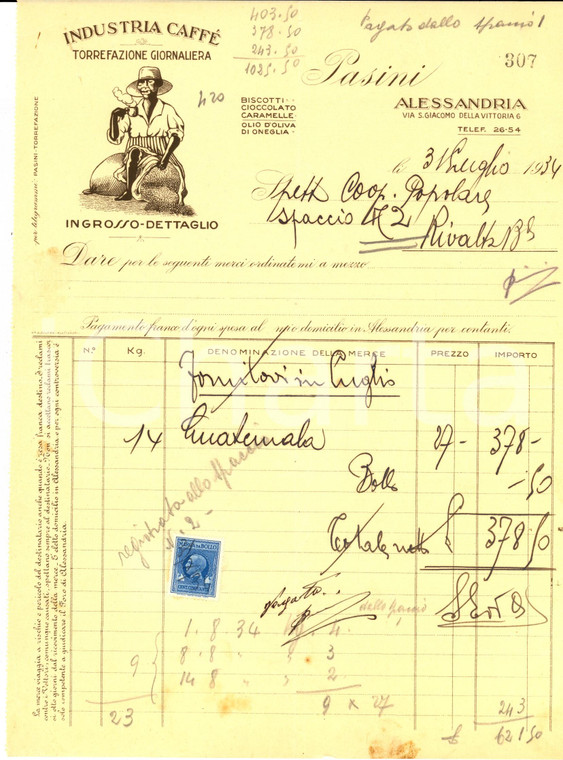 INDUSTRIA CAFFÉ
TORREFAZIONE GIORNALIERA
INGROSSO-DETTAGLIO
403.50
378.50
243.50
1025.50
420
Pagato dallo spaccio 1
307
Pasini
BISCOTTI
CIOCCOLATO
CARAMELLE
OLIO D'OLIVA
DI ONEGLIA
ALESSANDRIA
VIA S. GIACOMO DELLA VITTORIA 6
TELEF. 26-54
li 31 Luglio 1934
Spett. Coop. Popolare
Spaccio N. 2
Rivalta Bda
Dare per le seguenti merci ordinatemi a mezzo
Pagamento franco d'ogni spesa al mio domicilio in Alessandria per contanti.
N.º Kg. DENOMINAZIONE DELLE MERCE PREZZO IMPORTO
Fornitovi in Luglio
14 Guatemala 27- 378-
Bollo -50
registrata allo spaccio
N. 2-
Totale netto £ 378 50
MARCA DA BOLLO
pagato dallo spaccio
1.8.34 Kg. 4
8.8 " " 3
14 8 " " 2
9
9 x 27 243
23
£ 621.50
PASINI-TORREFAZIONE
La merce viaggia a rischio e pericolo del destinatario anche quando è resa franca destino, &. reclami
contro i Vettori, comunque causati, spettano sempre al destinatario. Non si accettano reclami trascorsi
gli 8 giorni dal ricevimento della merce. È dello domicilio in Alessandria e per ogni controversia è
solo competente a giudicare il Foro di Alessandria.